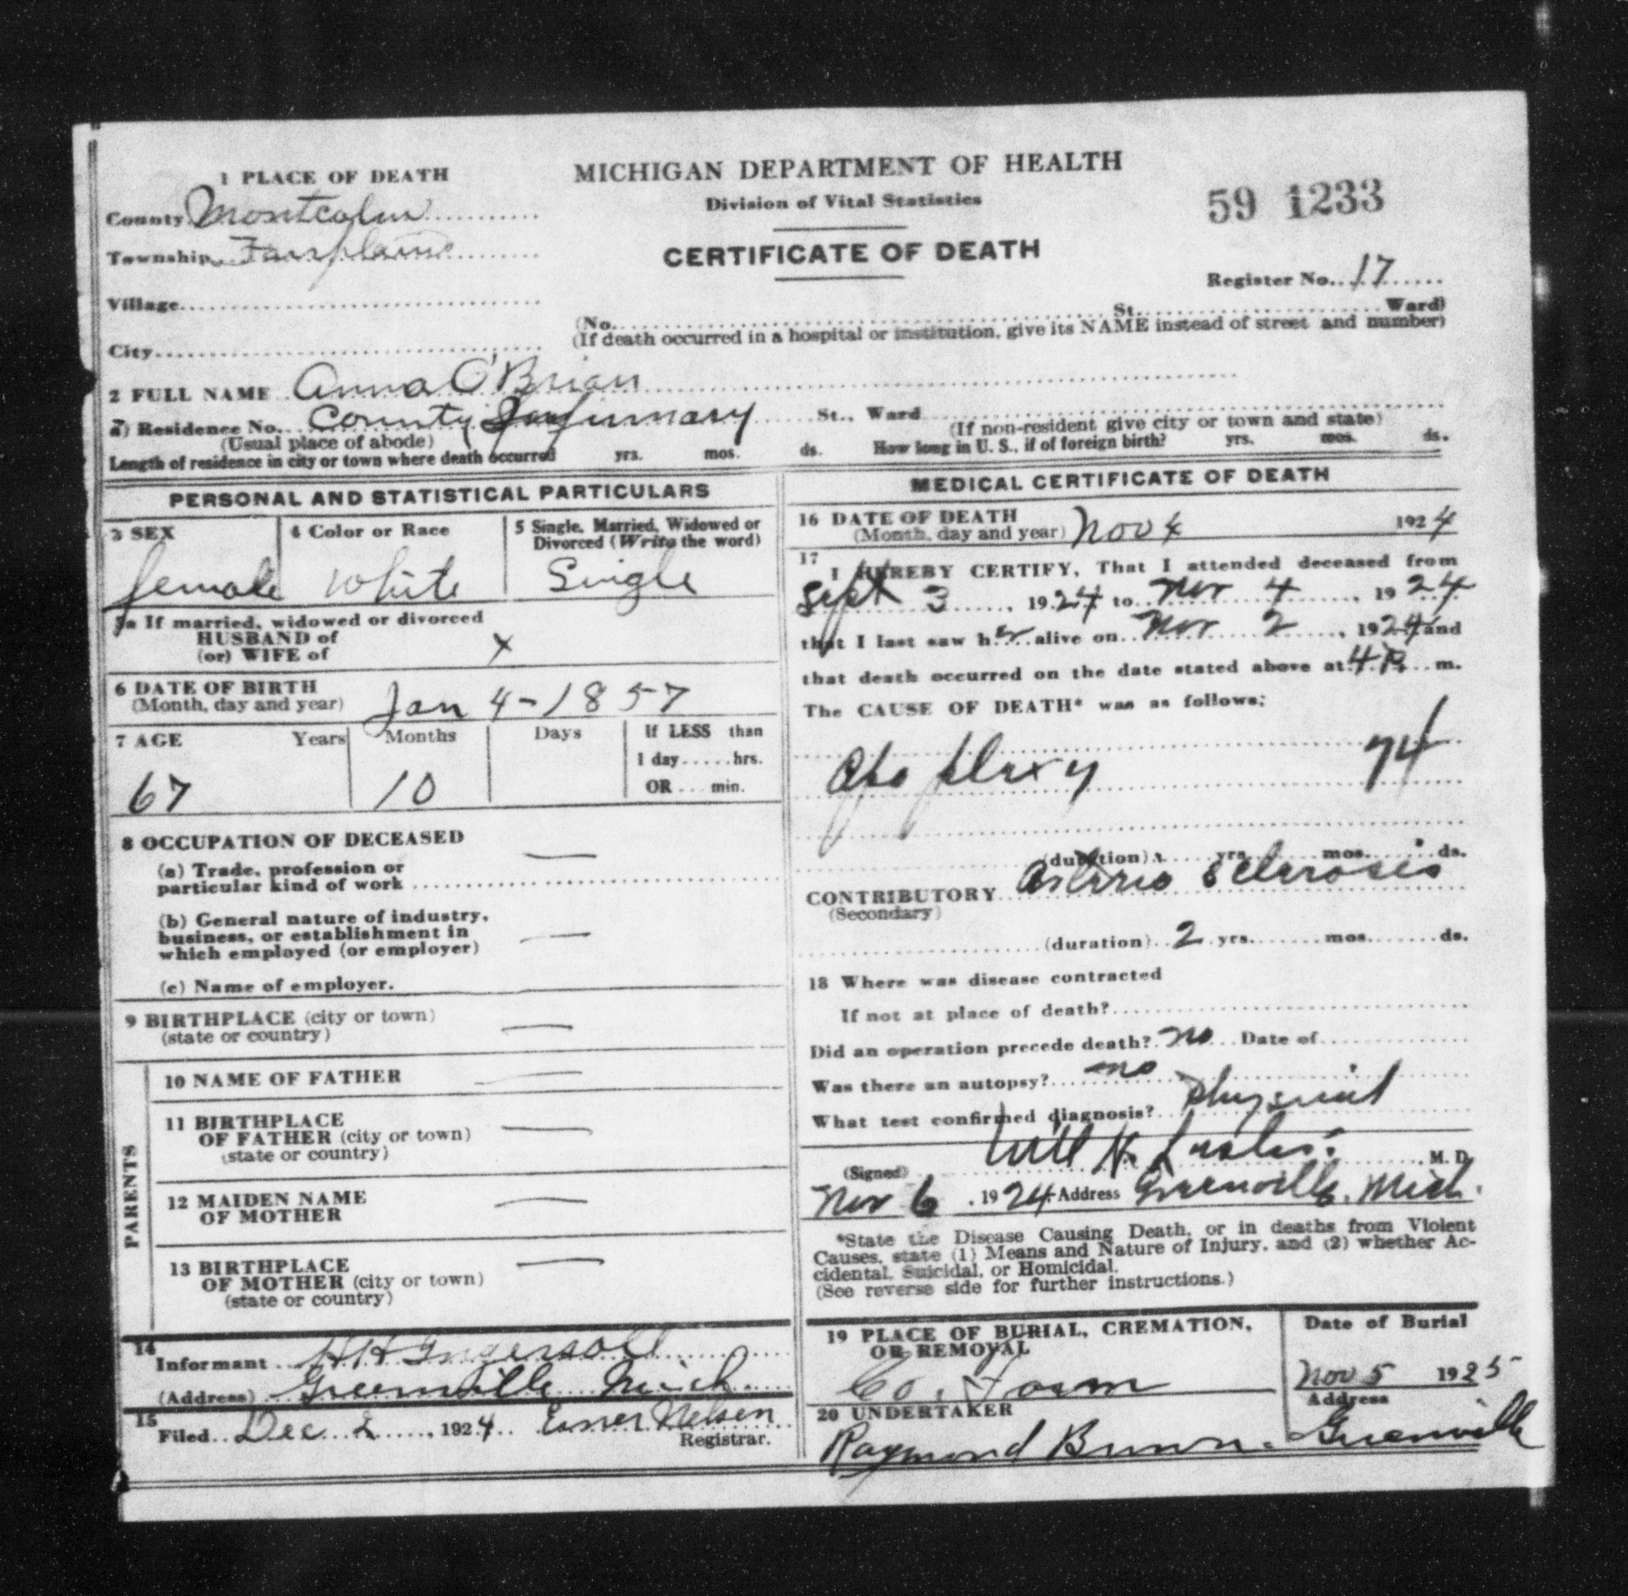 1 PLACE OF DEATH
County Montcalm
Township Fairplains
Village
City
MICHIGAN DEPARTMENT OF HEALTH
Division of Vital Statistics
CERTIFICATE OF DEATH
59 1233
Register No. 17
(No. St. Ward)
(If death occurred in a hospital or institution, give its NAME instead of street and number)
2 FULL NAME Anna O'Brian
a) Residence No. County Infirmary St., Ward
(Usual place of abode) (If non-resident give city or town and state)
Length of residence in city or town where death occurred yrs. mos. ds. How long in U. S., if of foreign birth? yrs. mos. ds.
PERSONAL AND STATISTICAL PARTICULARS
3 SEX
female
4 Color or Race
White
5 Single, Married, Widowed or
Divorced (Write the word)
Single
5a If married, widowed or divorced
HUSBAND of
(or) WIFE of x
6 DATE OF BIRTH
(Month, day and year) Jan 4-1857
7 AGE Years Months Days If LESS than
1 day.....hrs.
OR ... min.
67 10
8 OCCUPATION OF DECEASED
(a) Trade, profession or
particular kind of work —
(b) General nature of industry,
business, or establishment in
which employed (or employer) —
(c) Name of employer.
9 BIRTHPLACE (city or town)
(state or country) —
PARENTS
10 NAME OF FATHER —
11 BIRTHPLACE
OF FATHER (city or town) —
(state or country)
12 MAIDEN NAME
OF MOTHER —
13 BIRTHPLACE
OF MOTHER (city or town) —
(state or country)
14
Informant H H Ingersoll
(Address) Greenville Mich.
15
Filed Dec 2, 1924 Esner Nelsen
Registrar.
MEDICAL CERTIFICATE OF DEATH
16 DATE OF DEATH
(Month, day and year) Nov 4 1924
17
I HEREBY CERTIFY, That I attended deceased from
Sept 3, 1924 to Nov 4, 1924
that I last saw her alive on Nov 2, 1924 and
that death occurred on the date stated above at 4 P. m.
The CAUSE OF DEATH* was as follows:
Apoplexy 74
(duration) yrs. mos. ds.
CONTRIBUTORY Arterio Sclerosis
(Secondary)
(duration) 2 yrs. mos. ds.
18 Where was disease contracted
If not at place of death?
Did an operation precede death? no Date of
Was there an autopsy? no
What test confirmed diagnosis? Physical
(Signed) Will H. M. D.
Nov 6, 1924 Address Greenville, Mich.
*State the Disease Causing Death, or in deaths from Violent
Causes, state (1) Means and Nature of Injury, and (2) whether Ac-
cidental, Suicidal, or Homicidal.
(See reverse side for further instructions.)
19 PLACE OF BURIAL, CREMATION,
OR REMOVAL
Co. Farm
Date of Burial
Nov 5 1925
20 UNDERTAKER
Raymond Brown.
Address
Greenville